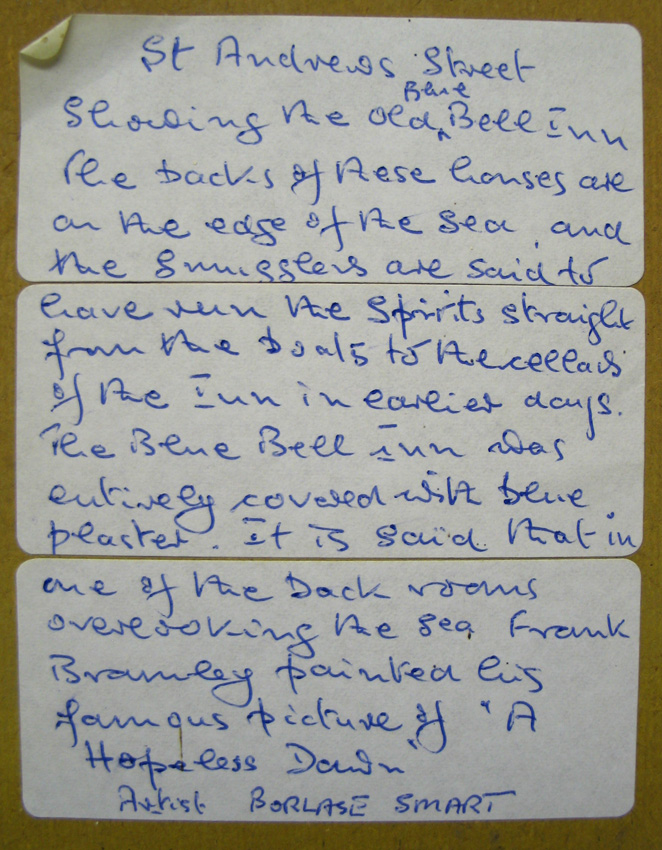 St Andrews Street
Blue
Showing the old Bell Inn
The backs of these houses are
on the edge of the sea, and
the smugglers are said to
have run the Spirits straight
from the boats to the cellars
of the Inn in earlier days.
The Blue Bell Inn was
entirely covered with blue
plaster. It is said that in
one of the back rooms
overlooking the sea Frank
Bramley painted his
famous picture of "A
Hopeless Dawn"
Artist BORLASE SMART